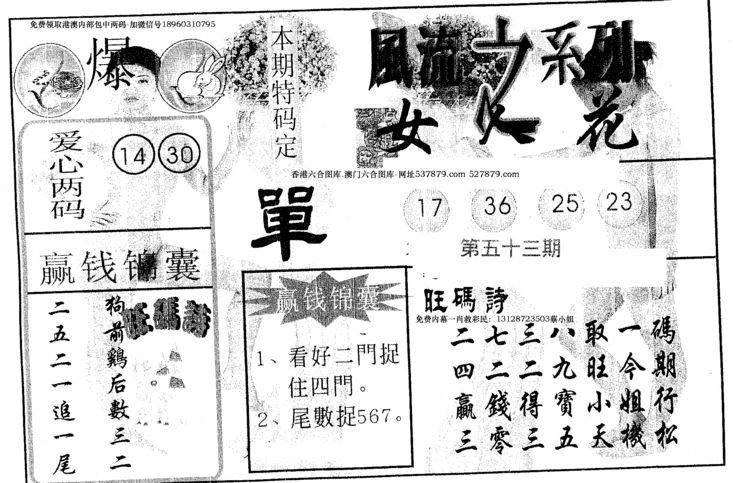 免费领取港澳内部包中两码·加微信号18960310795
爆
本期特码定
風流之系列
女人花
爱心两码
14 30
香港六合图库.澳门六合图库·网址537879.com 527879.com
單
17 36 25 23
第五十三期
赢钱锦囊
狗前鷄后數三二
二五二一追一尾
旺碼詩
赢钱锦囊
1、看好二門捉
住四門。
2、尾數捉567。
旺碼詩
免费内幕一肖救彩民：13128723503蔡小姐
碼期行松
一今姐機
取旺小天
八九寶五
三二得三
七二錢零
二四贏三